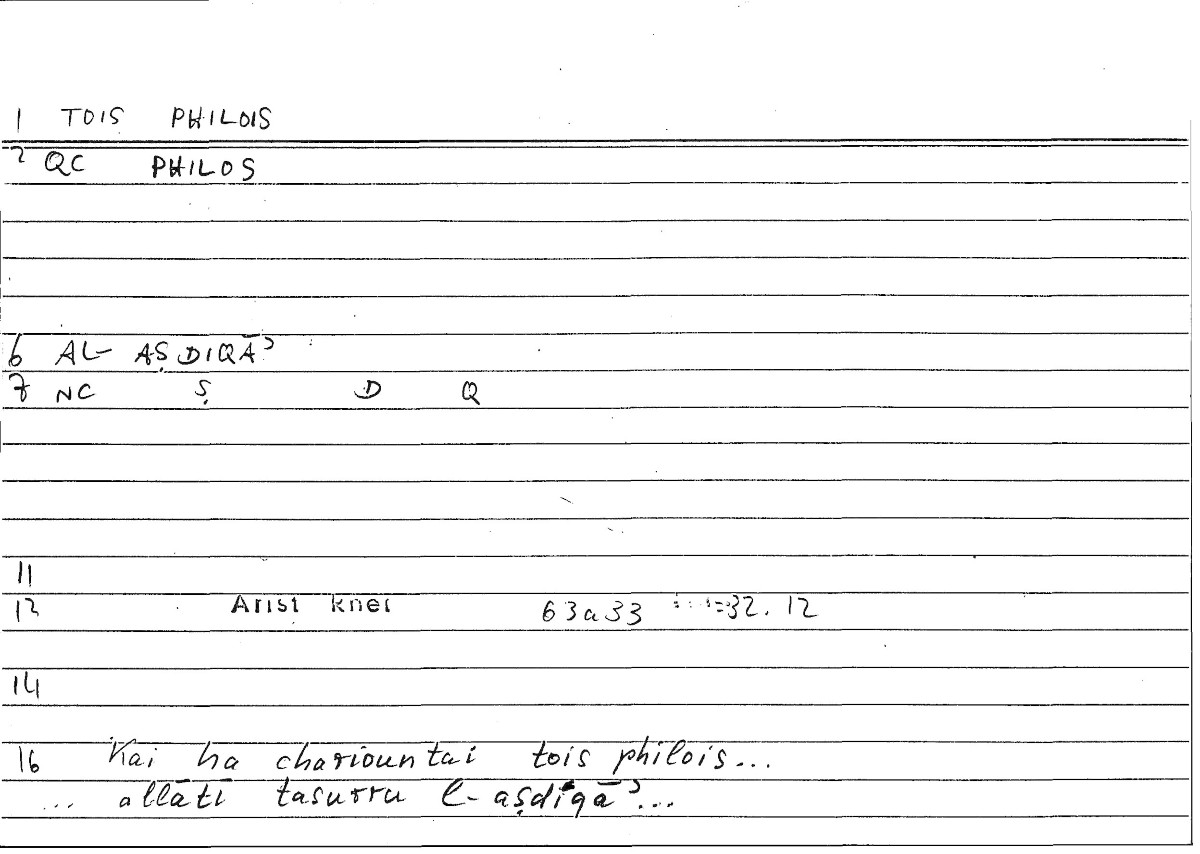 1 TOIS PHILOIS
2 QC PHILOS
6 AL- AṢDIQĀʾ
7 NC Ṣ D Q
11
12 Arist 63a33 =32.12
14
16 Kai ha chariountai tois philois...
... allātī tasurru l-aṣdiqāʾ...